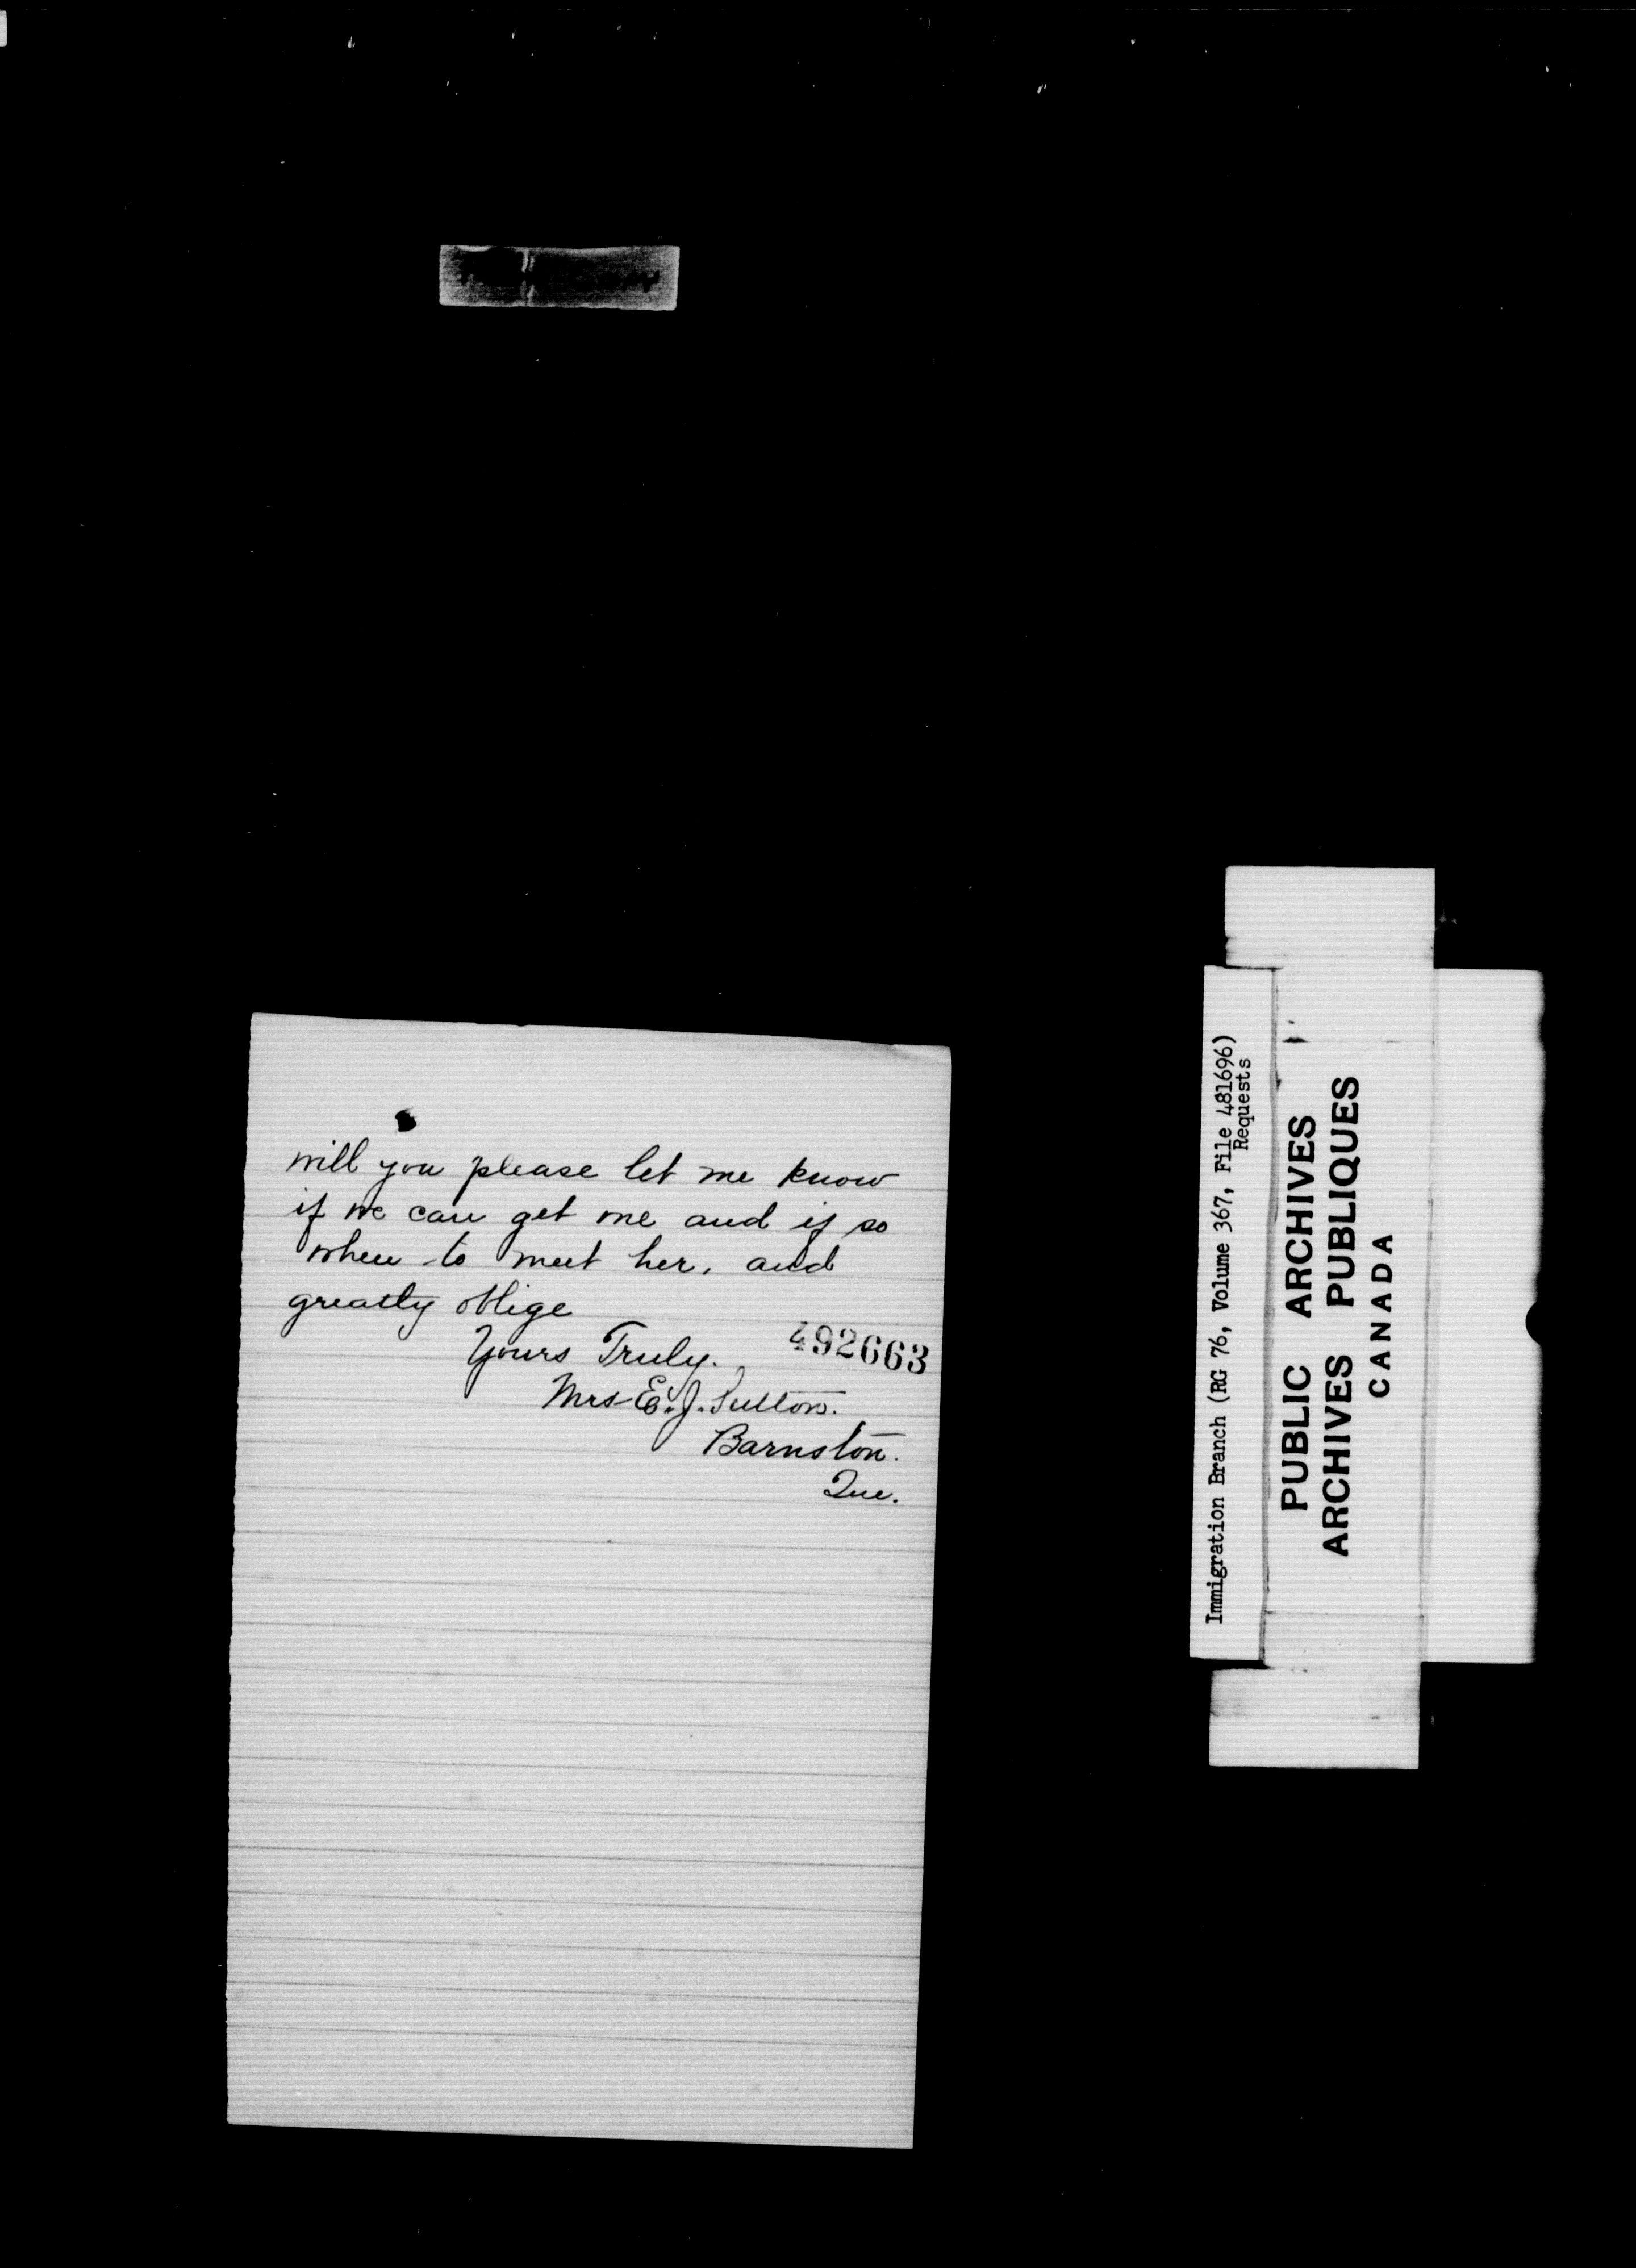 will you please let me know
if we can get one and if so
when to meet her, and
greatly oblige
Yours Truly.
492663
Mrs E. J. Sutton.
Barnston.
Que.
Immigration Branch (RG 76, Volume 367, File 481696)
Requests
PUBLIC ARCHIVES
ARCHIVES PUBLIQUES
CANADA